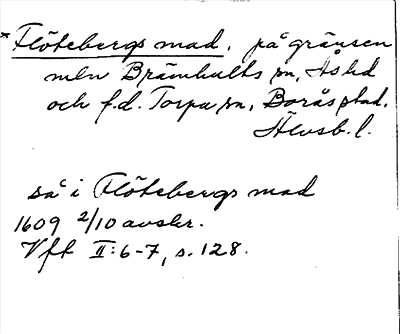 *Flötebergs mad, på gränsen
mln Brämhults sn, Ås hd
och f.d. Torpa sn, Borås stad.
Älvsb. l.
så i Flötebergs mad
1609 2/10 avskr.
Vft II:6-7, s. 128.